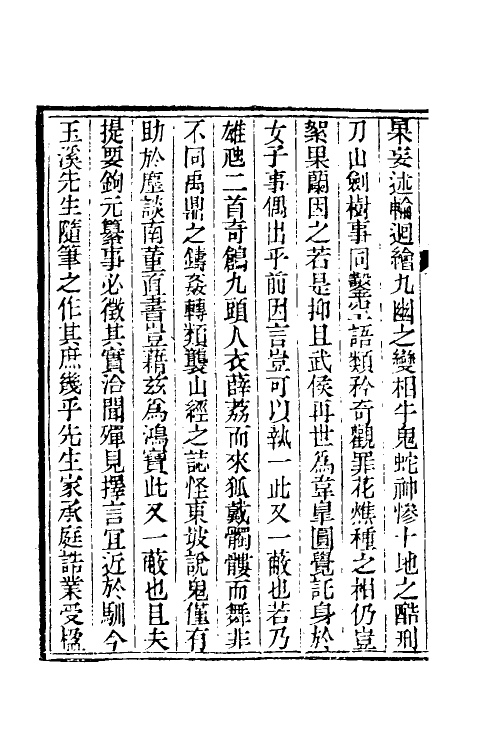 果妄述輪迴繪九幽之變相牛鬼蛇神慘十地之酷刑
刀山劍樹事同鑿空語類矜奇觀罪花燋種之相仍豈
絮果蘭因之若是抑且武侯再世為韋皐圓覺託身於
女子事偶出乎前因言豈可以執一此又一蔽也若乃
雄虺二首奇鶬九頭人衣薜荔而來狐戴髑髏而舞非
不同禹鼎之鑄姦轉類襲山經之誌怪東坡說鬼僅有
助於麈談南董直書豈藉茲為鴻寶此又一蔽也且夫
提要鉤元纂事必徵其實洽聞殫見擇言宜近於馴今
玉溪先生隨筆之作其庶幾乎先生家承庭誥業受楹